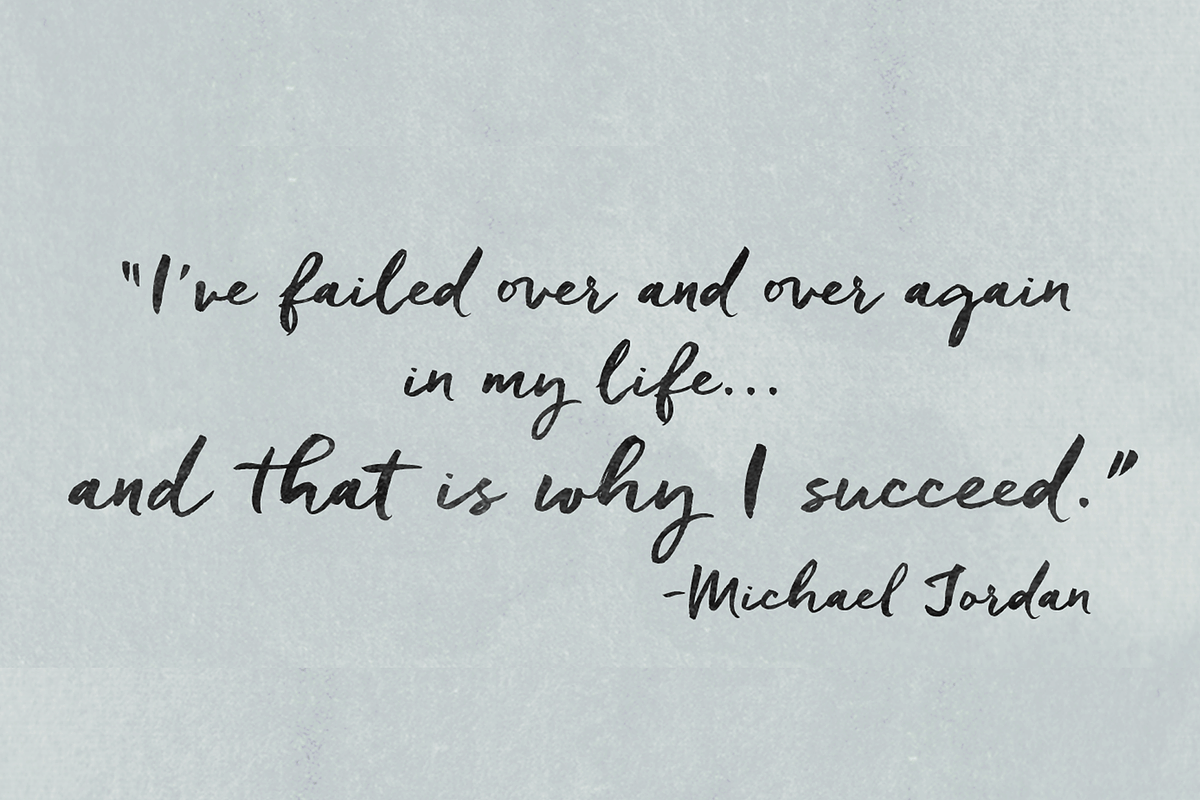 "I've failed over and over again
in my life...
and that is why I succeed."
-Michael Jordan